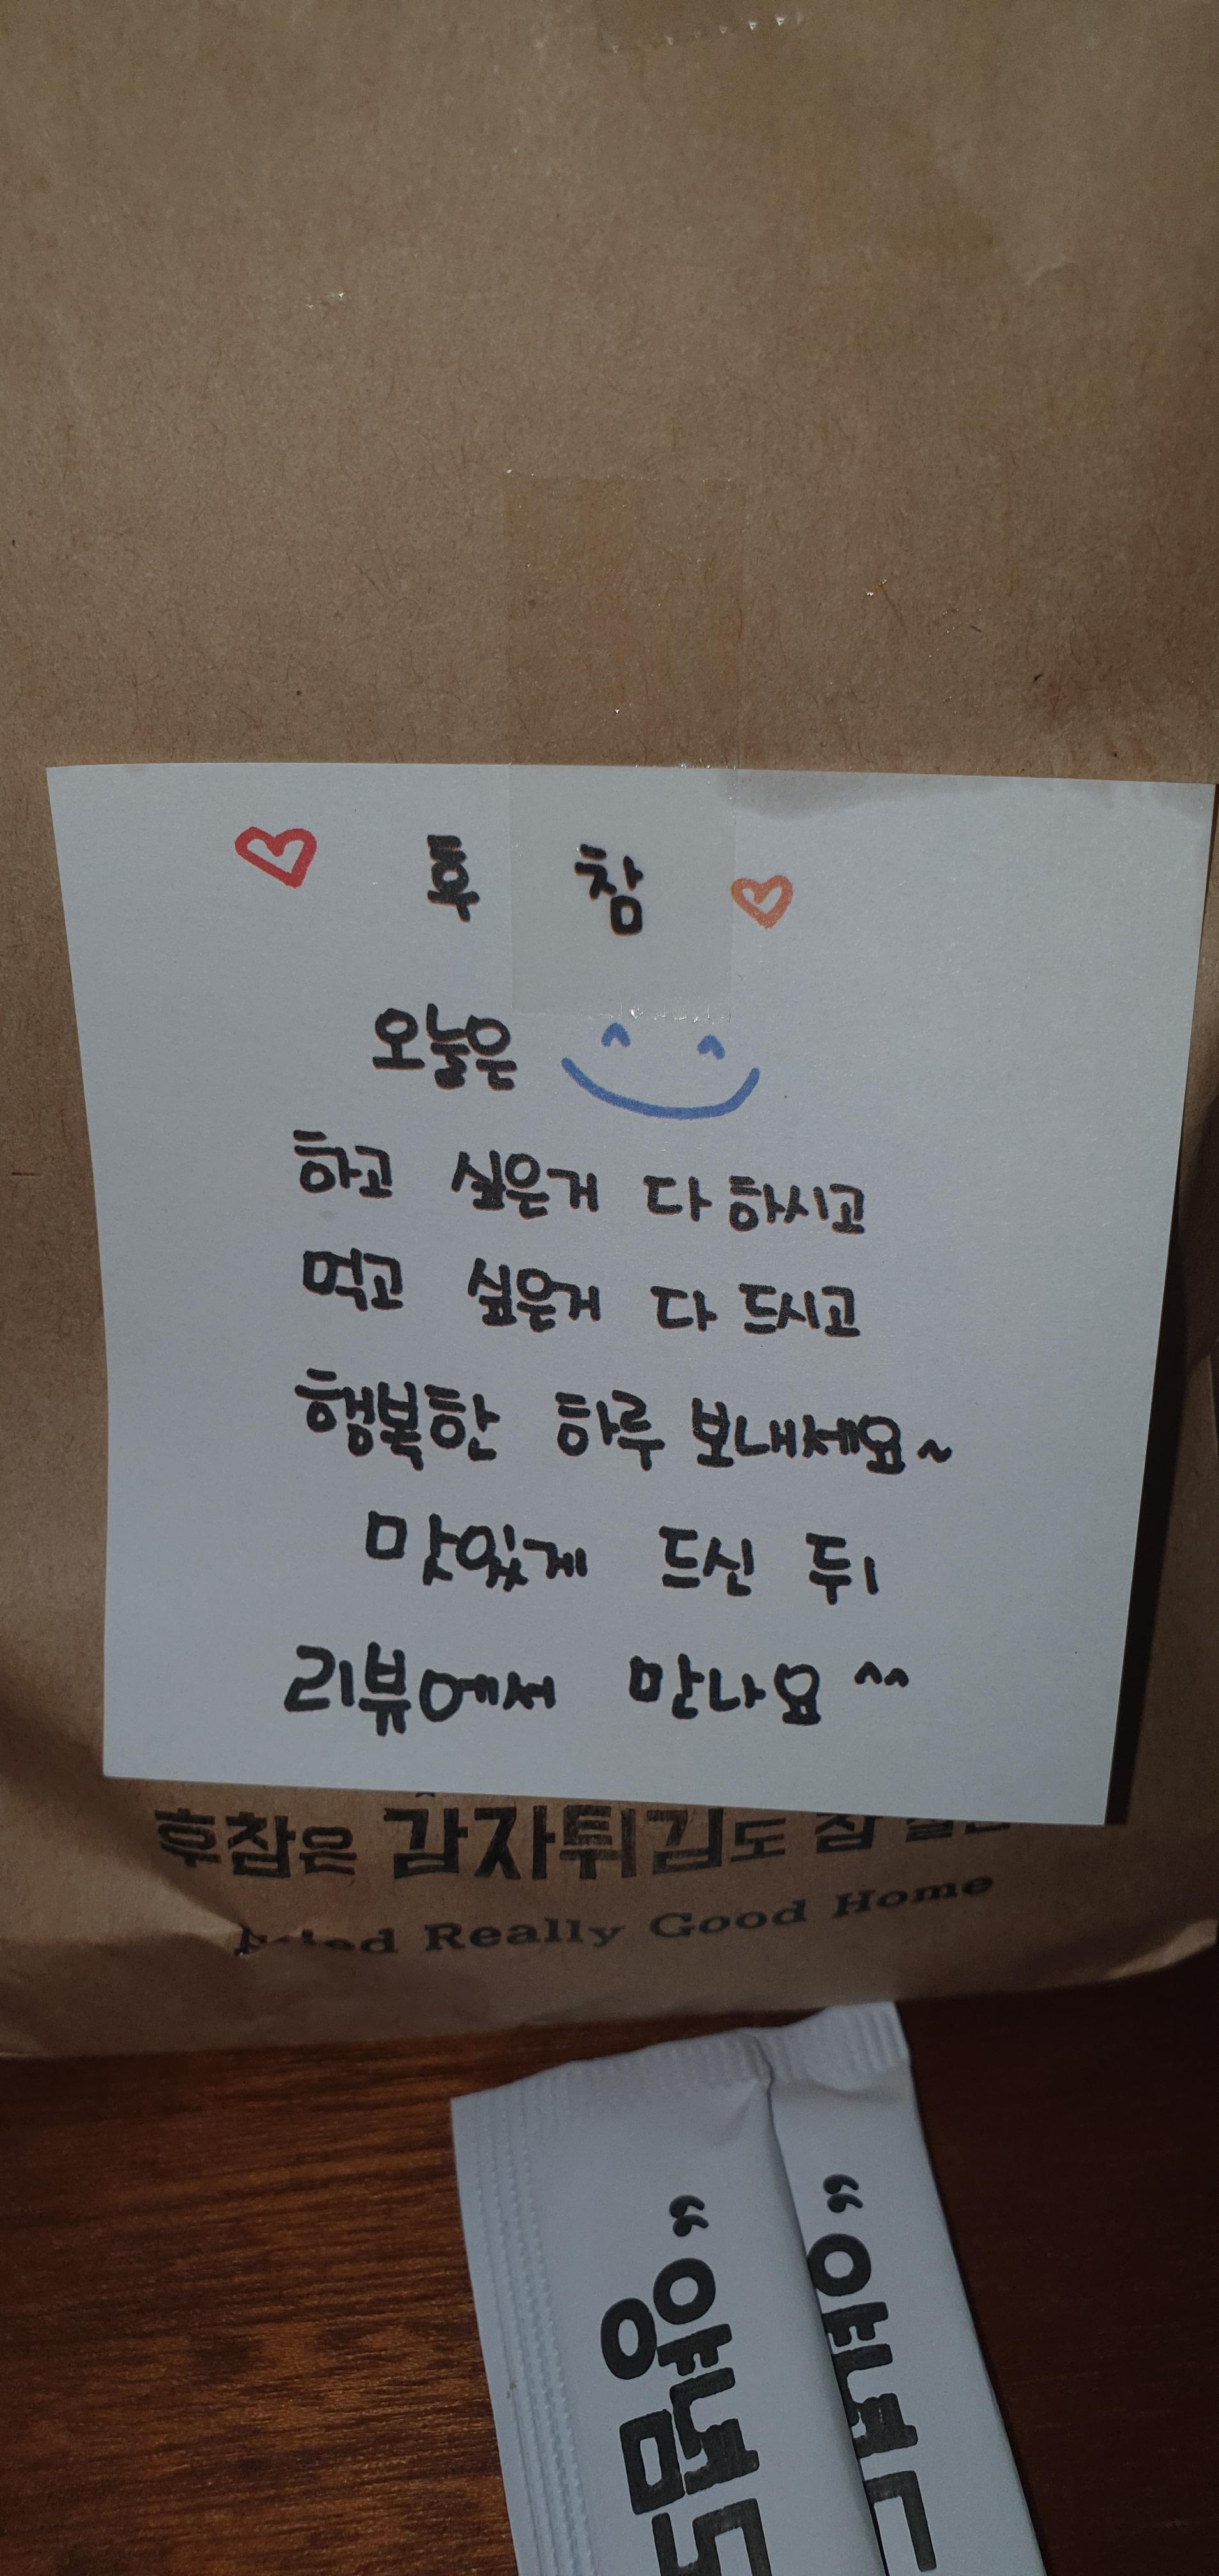 후 참
오늘은
하고 싶은거 다 하시고
먹고 싶은거 다 드시고
행복한 하루 보내세요~
맛있게 드신 뒤
리뷰에서 만나요^^
후참은 감자튀김도 참
Really Good Home
“양념
“양념